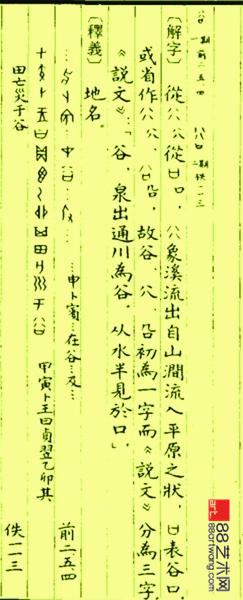 一期前二五四 二期佚一一三
〔解字〕從從口，象溪流出自山澗流入平原之狀，口表谷口.
或省作，故谷、初為一字而《說文》分為三字
《說文》：「谷，泉出通川為谷．从水半見於口」
〔釋義〕
地名。
…申卜賓…在谷…及… 前二.五.四
甲寅卜王曰貞翌乙卯其
田亡災于谷 佚一一三
88艺术网
art.
88artwang.com